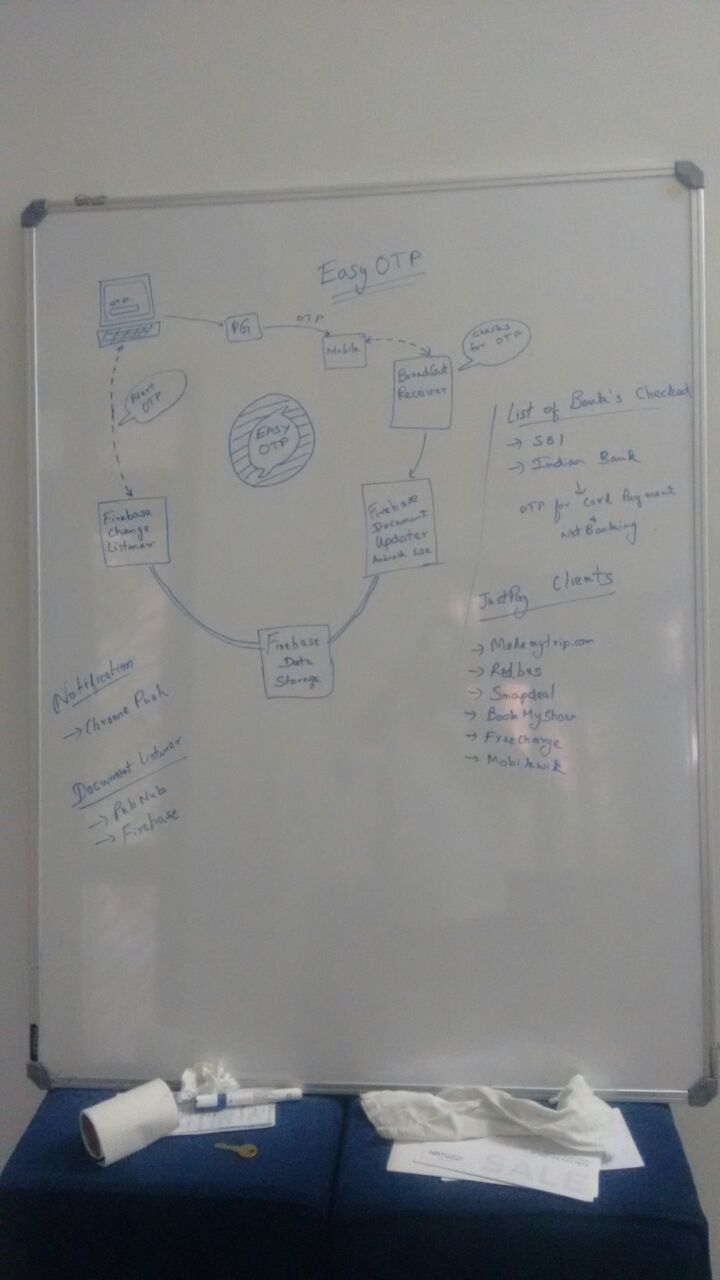 Easy OTP
OTP
PG
OTP
Mobile
Checks
for OTP
BroadCast
Reciever
Alert
OTP
EASY
OTP
Firebase
Change
Listner
Firebase
Document
Updater
Android SDK
Firebase
Data
Storage
List of Bank's Checked
→ SBI
→ Indian Bank
↓
OTP for Card Payment
+
Net Banking
JustPay Clients
→ Makemytrip.com
→ Redbus
→ Snapdeal
→ BookMyShow
→ Freecharge
→ Mobikwik
Notification
→ Chrome Push
Document Listner
→ PubNub
→ Firebase
NATUZZI
SALE